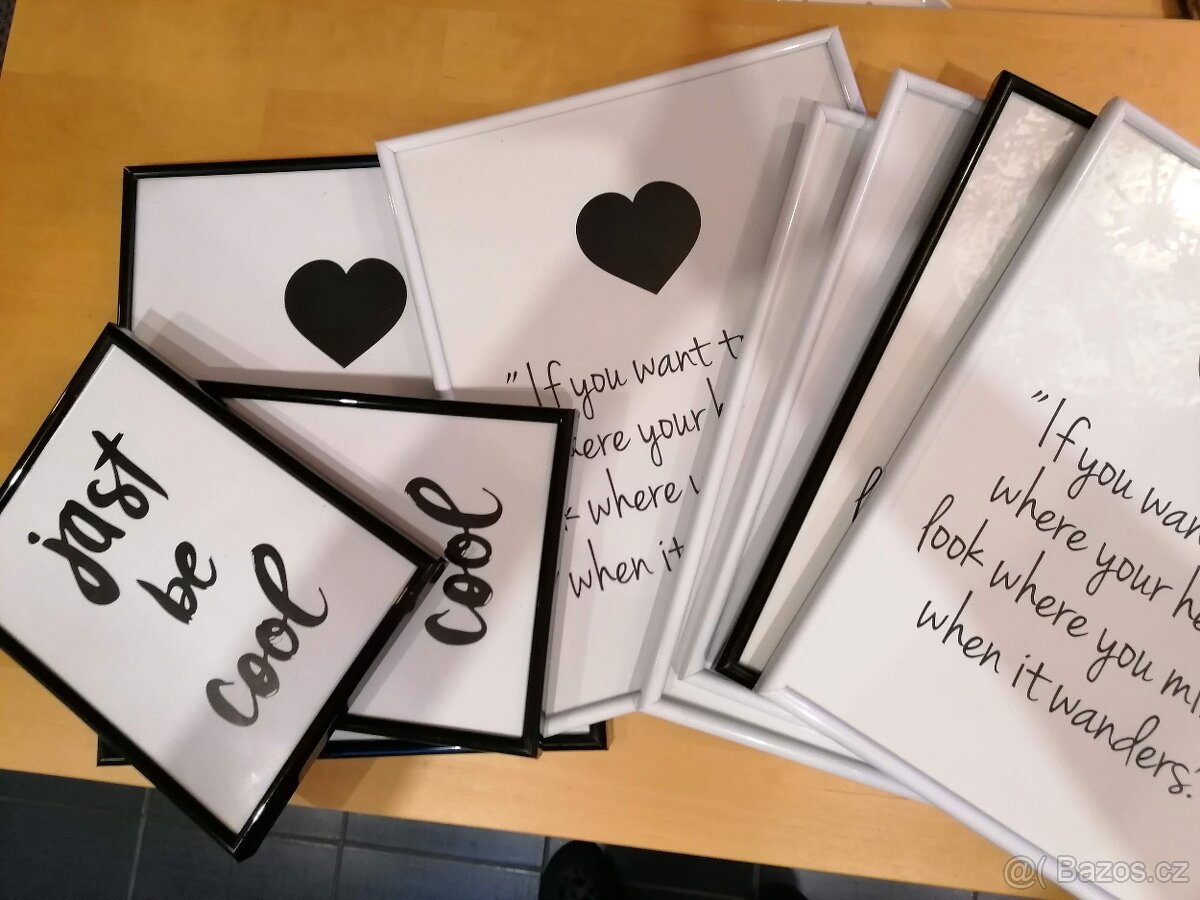 just
be
cool
cool
"If you want t
ere your
where
when it
"If you wan
where your he
look where you mi
when it wanders."
@( Bazos.cz